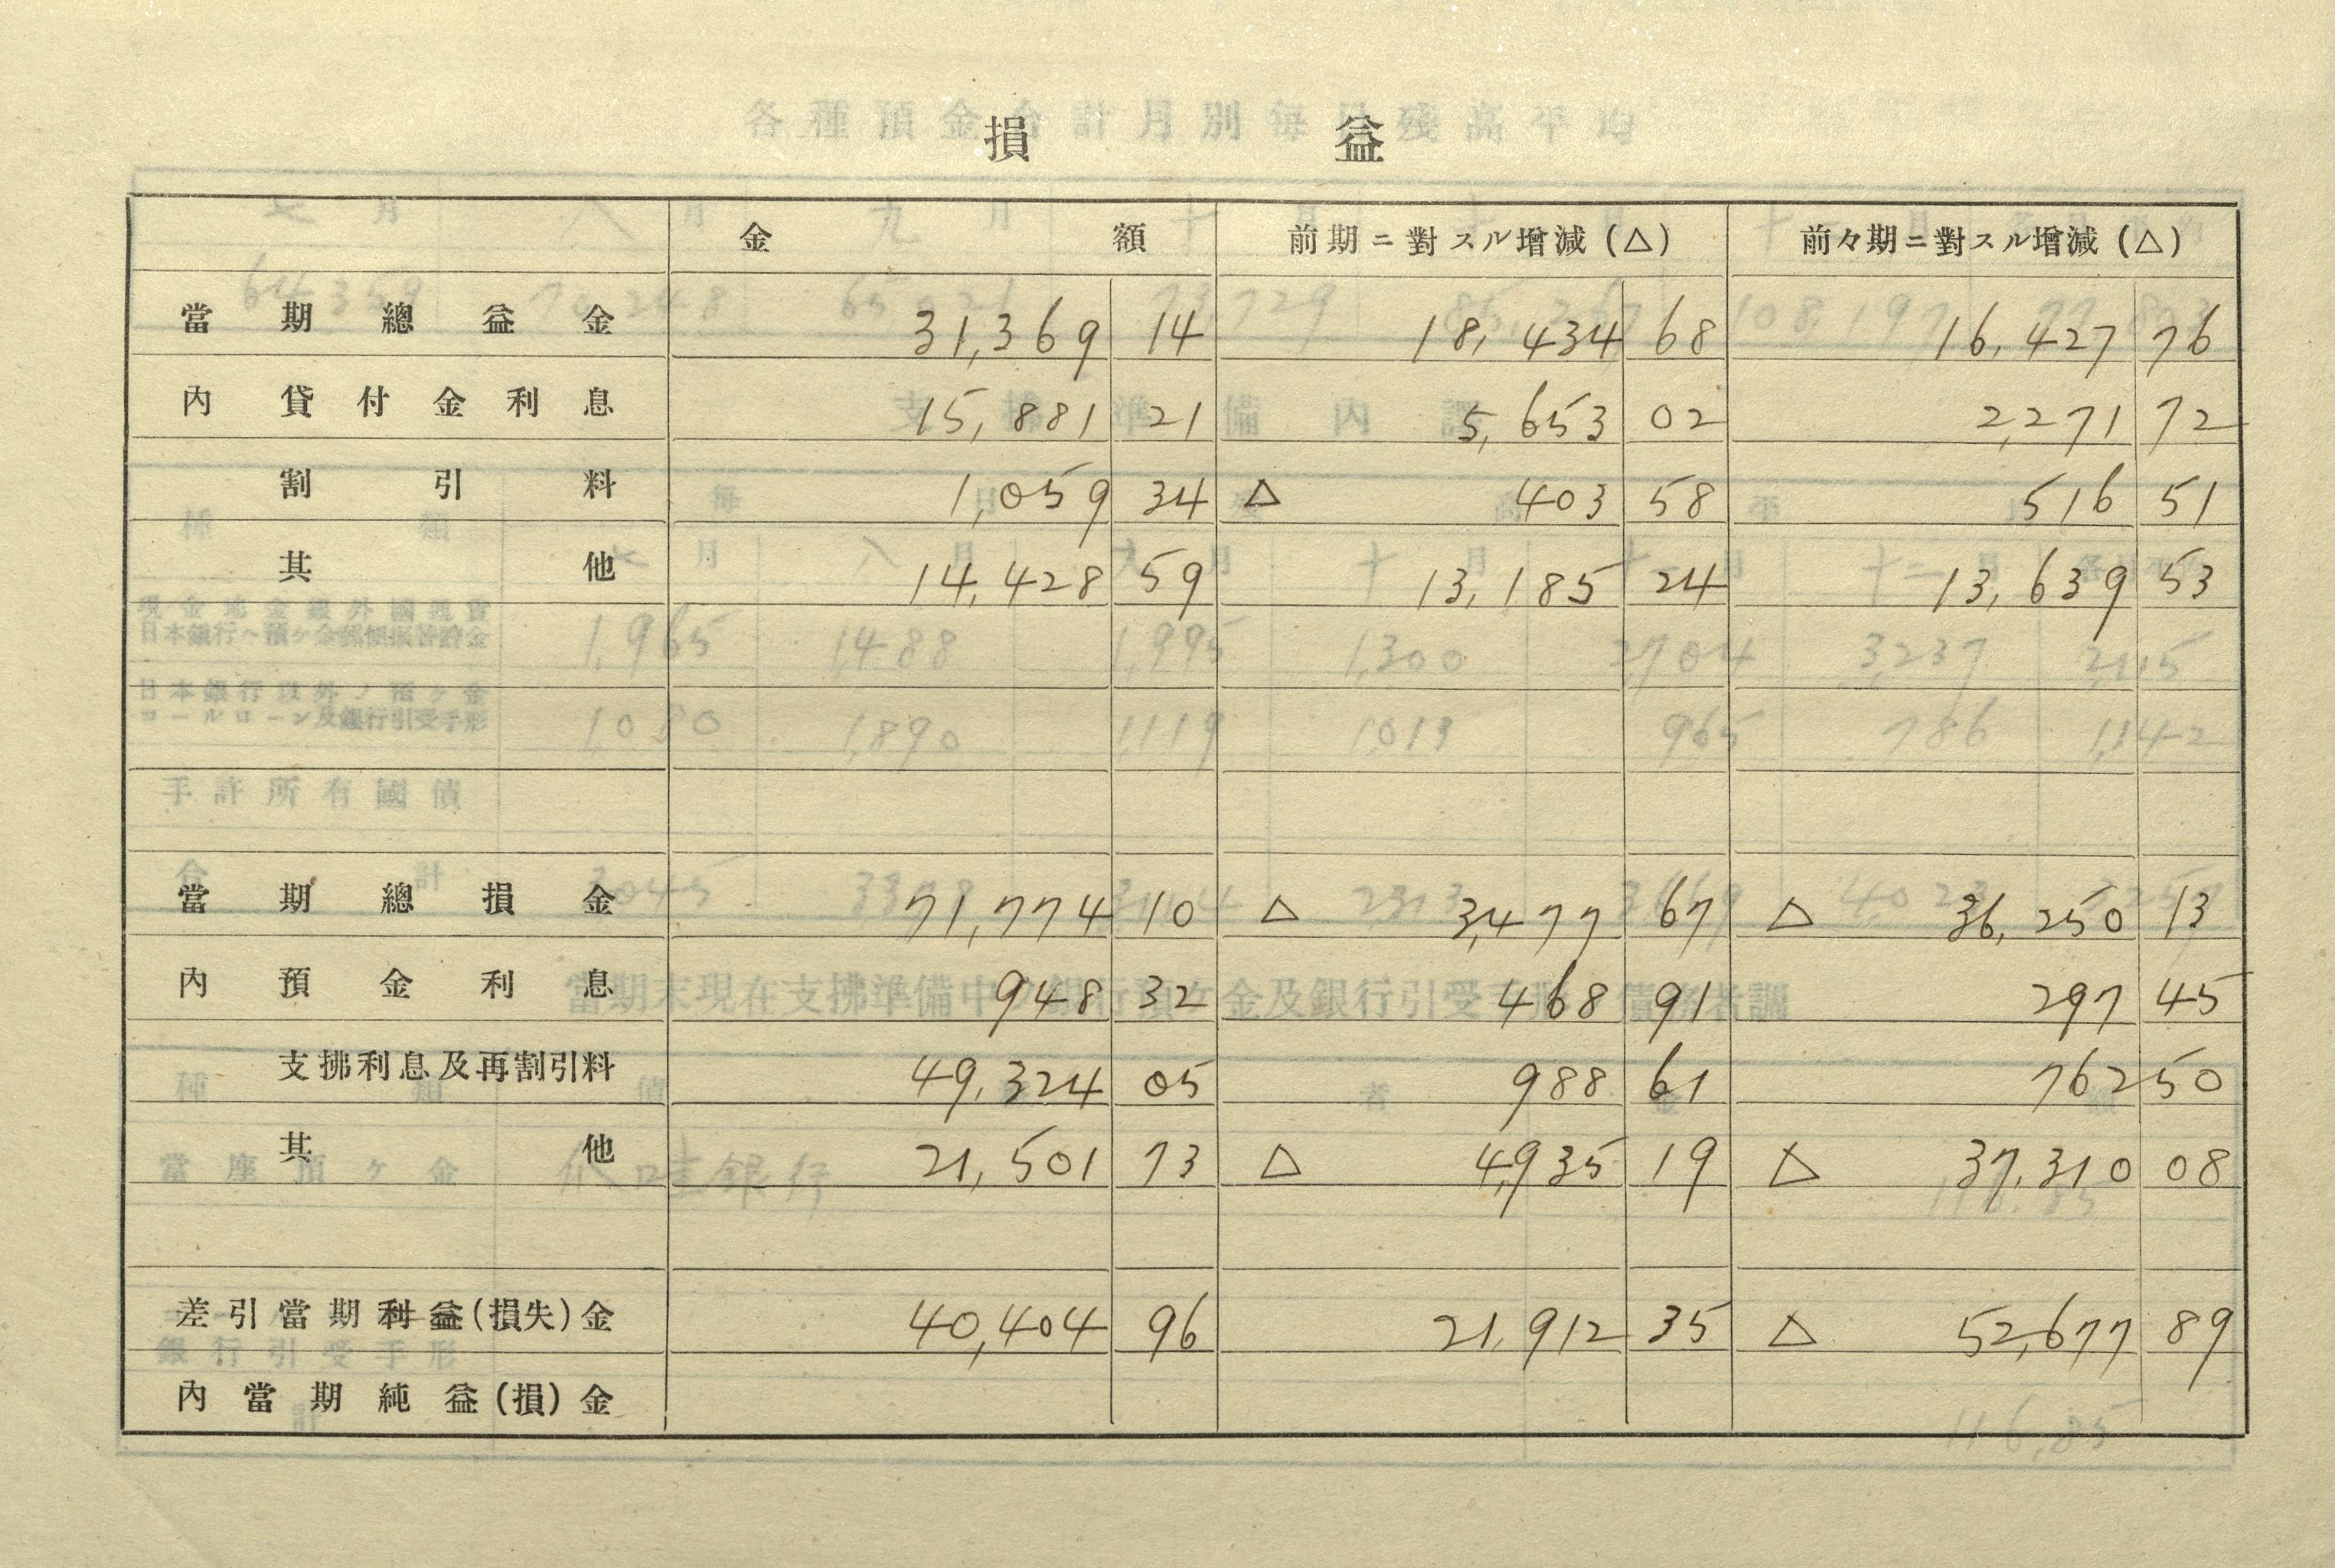 損益
金額 前期ニ對スル増減(△) 前々期ニ對スル増減(△)
當期總益金 31,369 14 18,434 68 16,427 76
內貸付金利息 15,881 21 5,653 02 2,271 72
割引料 1,059 34 △ 403 58 516 51
其他 14,428 59 13,185 24 13,639 53
當期總損金 71,774 10 △ 3,477 67 △ 36,250 13
內預金利息 948 32 468 91 297 45
支拂利息及再割引料 49,324 05 988 61 762 50
其他 21,501 73 △ 4,935 19 △ 37,310 08
差引當期利益(損失)金 40,404 96 21,912 35 △ 52,677 89
內當期純益(損)金